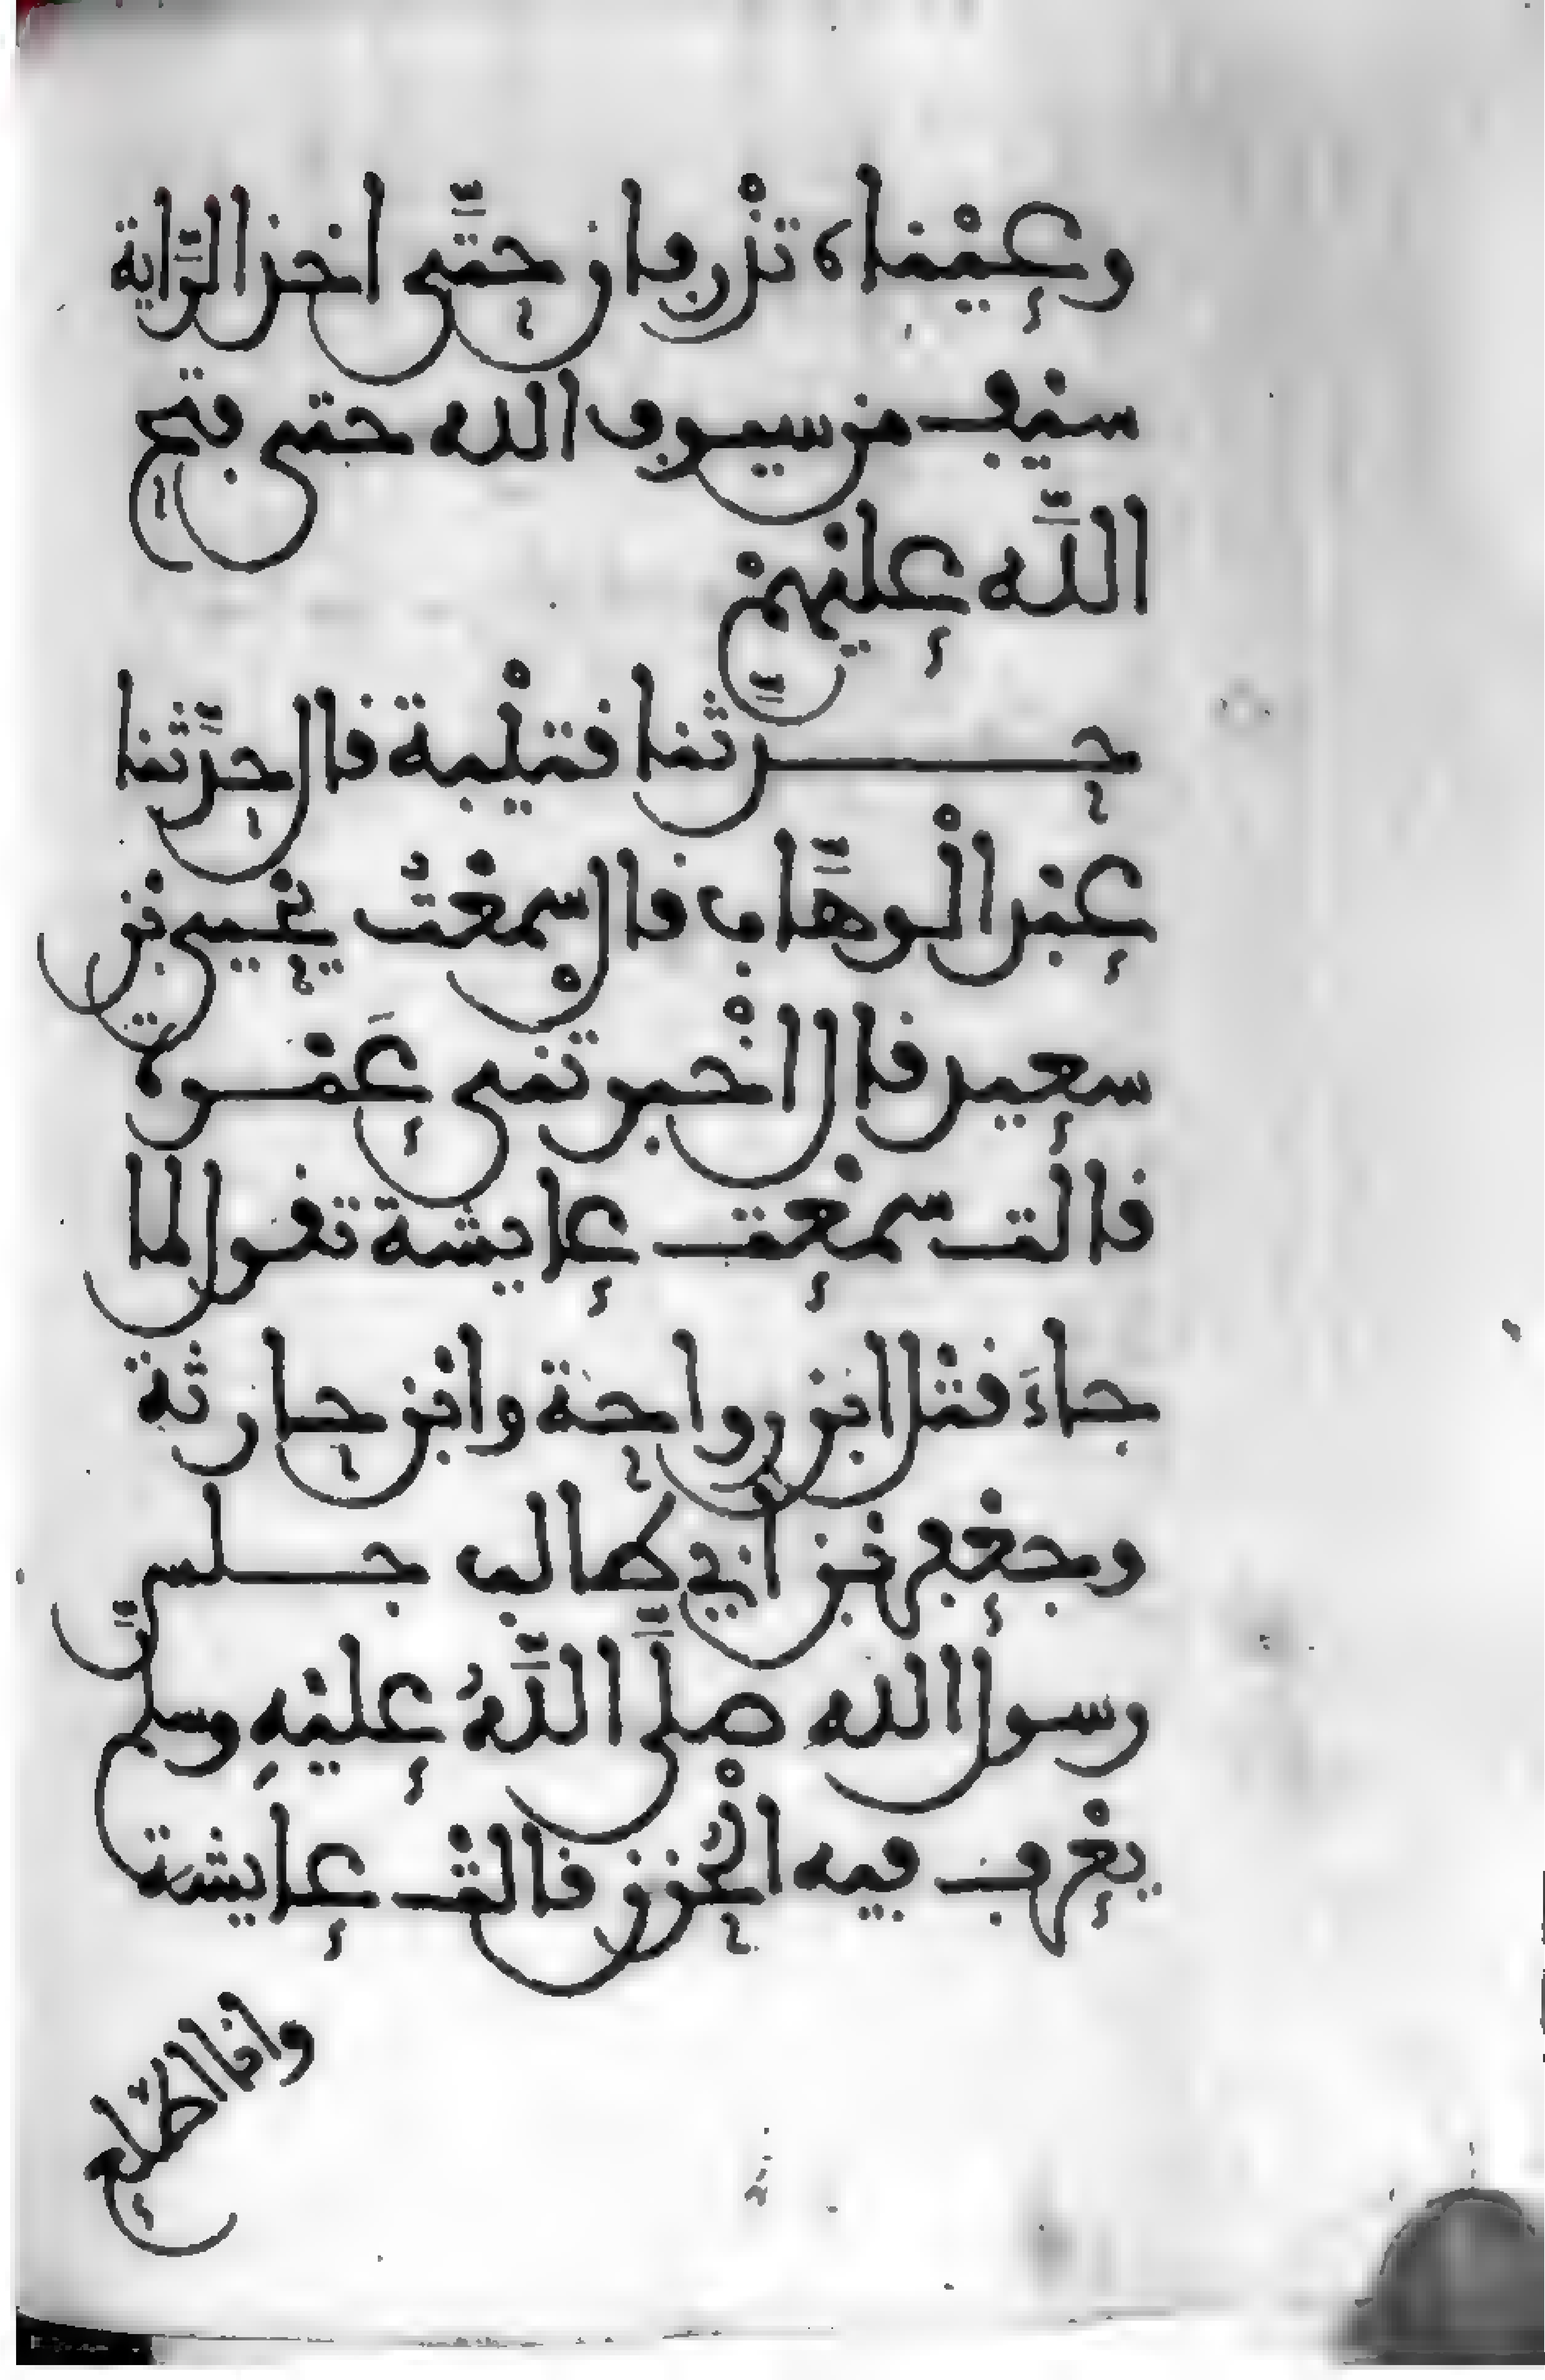 وعيْناه تذْرفان حتَّى اخذ الرَّاية
سيْف من سيوف الله حتى فتح
اللَّه عليْهمْ
حدَّثنا قتيْبة قال حدَّثنا
عبْد الْوهَّاب قال سمعْتُ يحيى بْن
سعيد قال اخْبرتنى عَمْرة
قالت سمعْت عايشة تقول لما
جاءَ قتْل ابن رواحَة وابْن حارثة
وجعْفر بْن أبي طالب جلس
رسول الله صلَّى اللَّهُ عليْهِ وسلم
يعْرف فيه الْحُزن قالتْ عايشَة
وانا اطَّلع